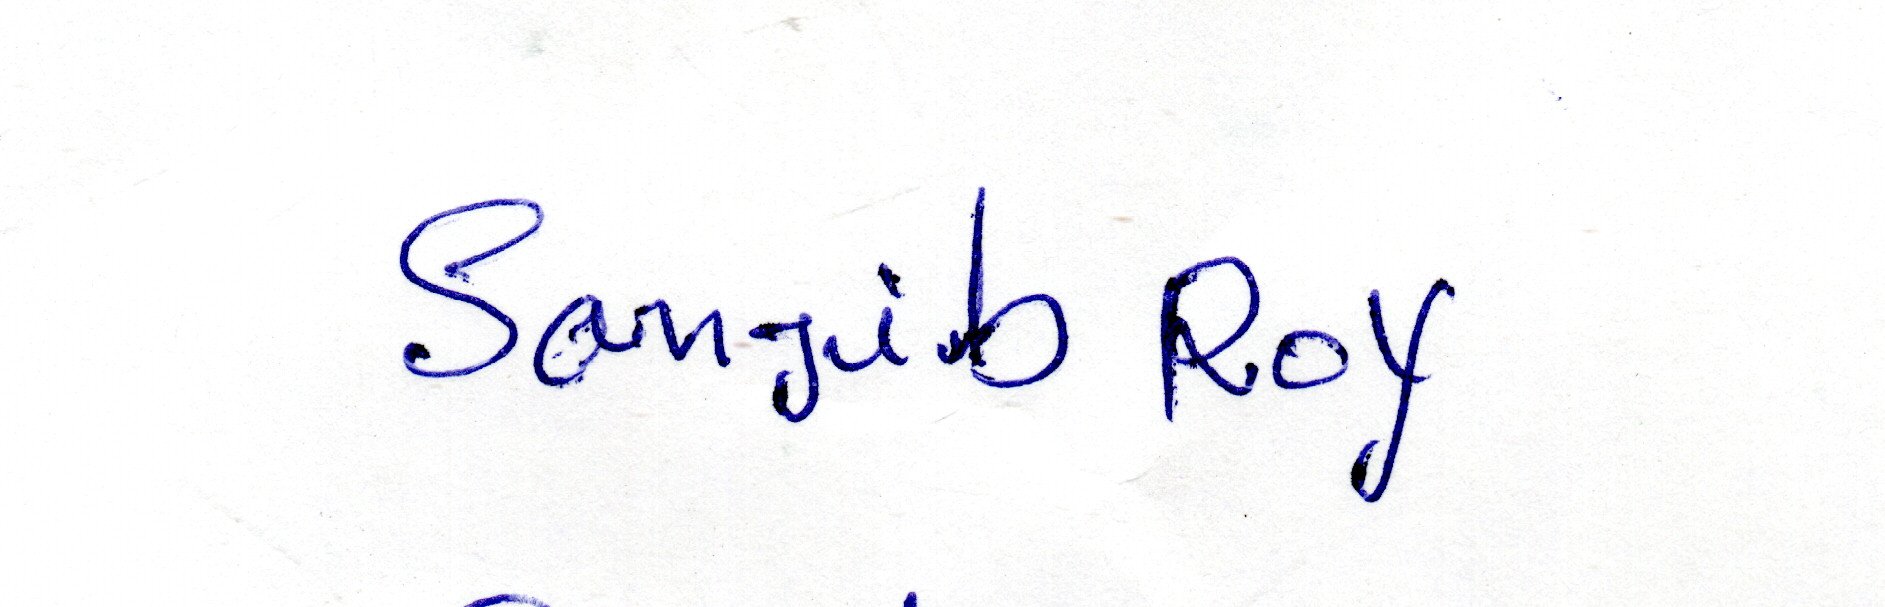 Sanjib Roy